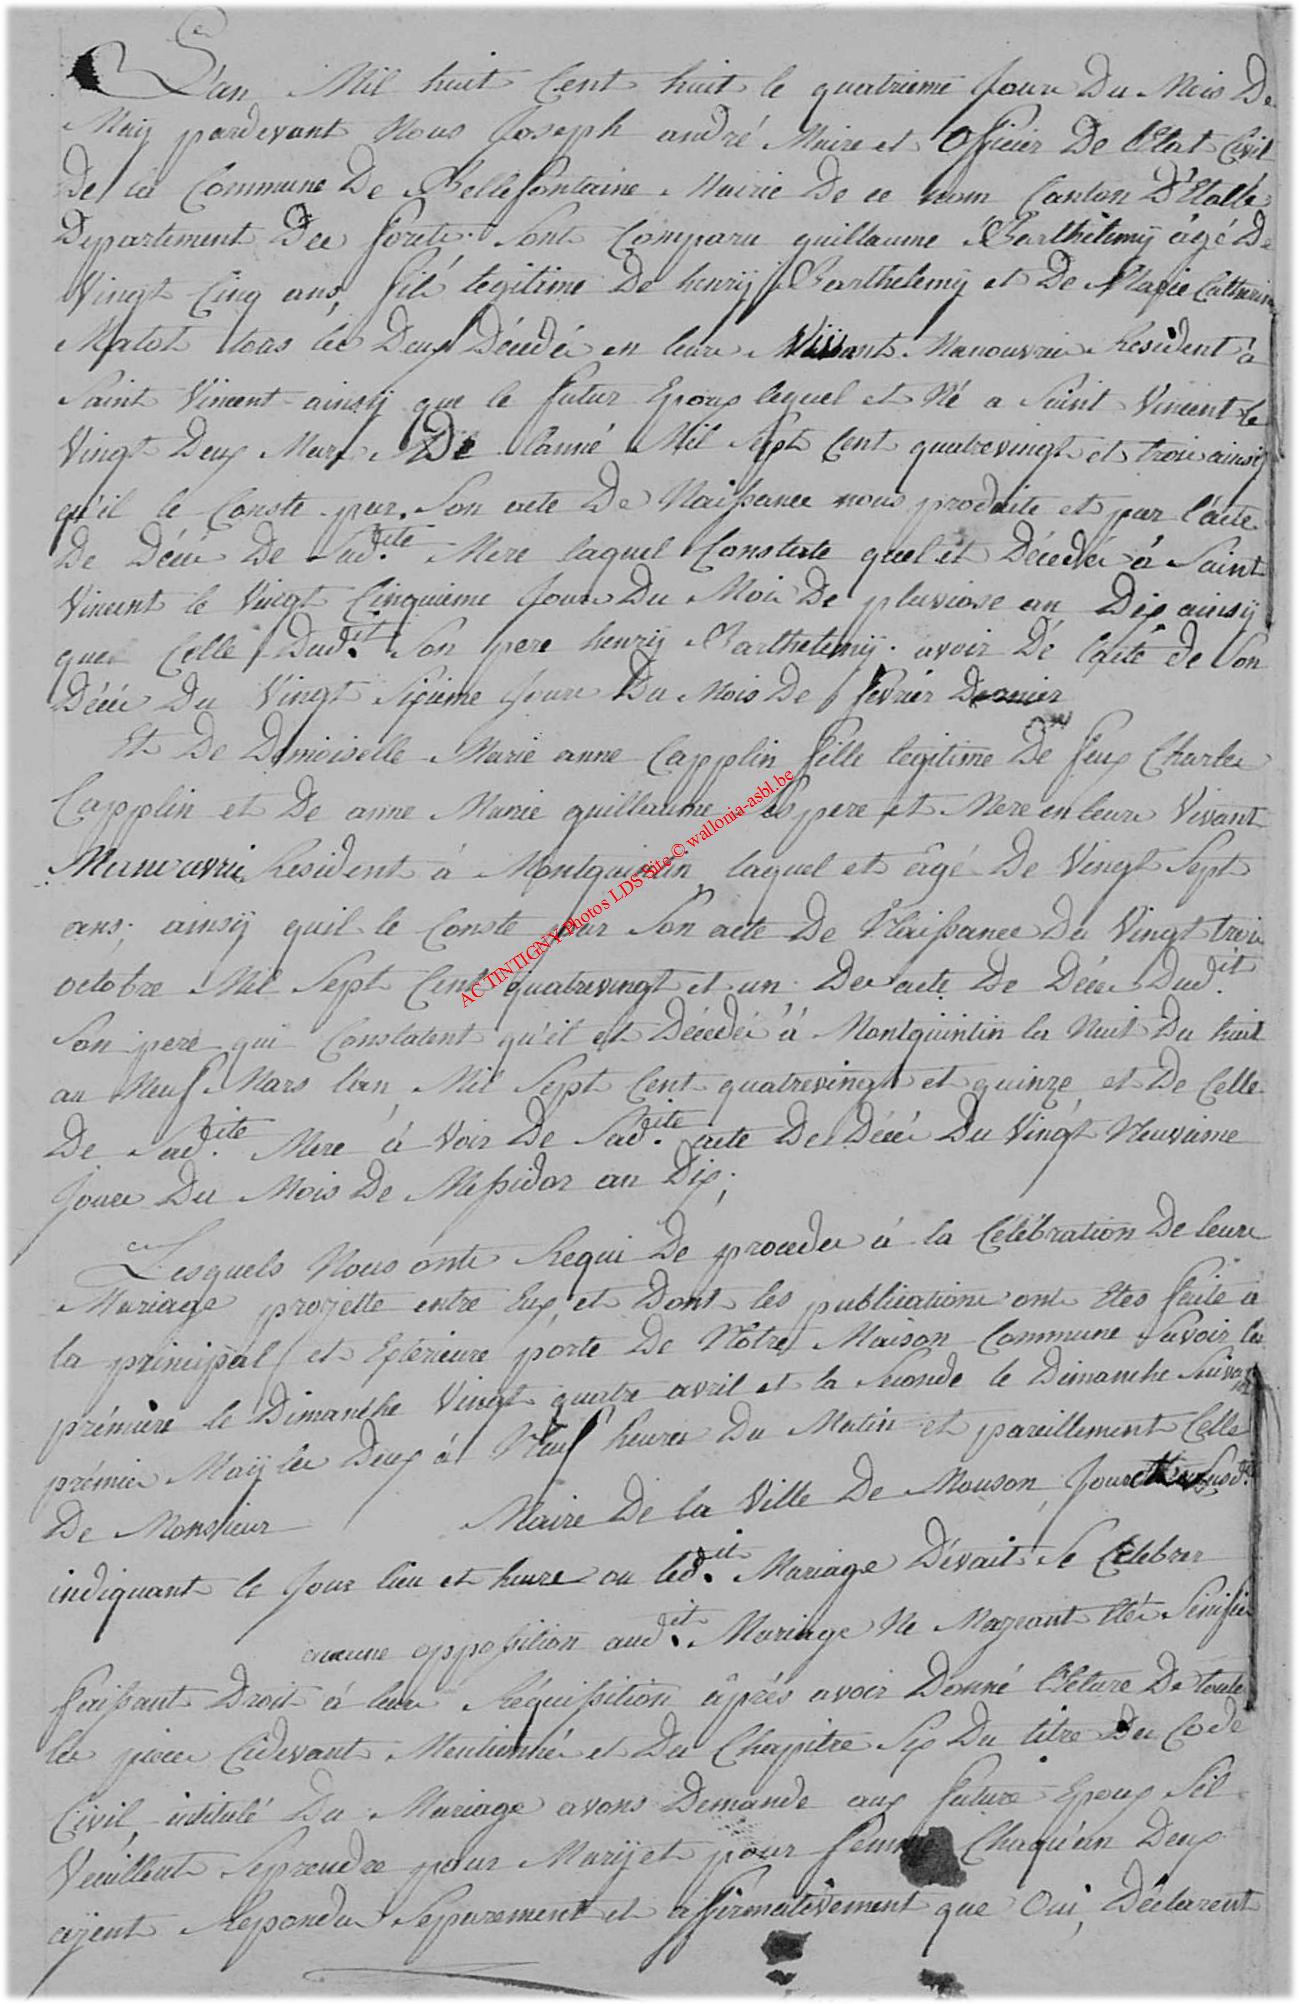 L'an Mil huit Cent huit le quatrieme Jour Du Mois De
Maÿ pardevant Nous Joseph andré Maire et Officier De l'Etat Civil
De la Commune De Bellefontaine Mairie De ce nom Canton D'Etalle
Departement Des forets Sont Comparu guillaume Barthélemÿ âgé De
Vingt Cinq ans, fils legitime De henrÿ Barthelemÿ et De Marie Catherine
Matot tous les Deux Décédés en leurs Vivant Manouvrier Resident à
Saint Vincent ainsÿ que le futur Epoux lequel et Né a Saint Vincent le
Vingt Deux Mars De lanné Mil Sept Cent quatrevingt et trois ainsÿ
qu'il le Conste par Son acte De Naissance nous produite et par l'acte
De Décés De Sad.ite Mere laquel Constate quel et Décedée à Saint
Vincent le Vingt Cinquieme Jour Du Mois De pluviose an Dix ainsÿ
que Celle Dud.it Son pere henrÿ Barthelemÿ avoir Dé l'acte de Son
Décés Du Vingt Sixieme Jour Du Mois De fevrier Dernier
Et De Demoiselle Marie anne Capplin fille legitime De feux Charles
Capplin et De anne Marie guillaume Ses pere et Mere en leurs Vivant
Manouvrie Resident à Montquintin laquel et âgé De Vingt Sept
ans; ainsÿ quil le Conste par Son acte De Naissance Du Vingt trois
octobre Mil Sept Cent quatrevingt et un De acte De Décés Dud.it
Son pere qui Constatent qu'il et Décedée à Montquintin la Nuit Du huit
au Neuf Mars l'an Mil Sept Cent quatrevingt et quinze et De Celle
De Sad.ite Mere à Voir De Sad.ite acte De Décés Du Vingt Neuvieme
Jours Du Mois De Messidor an Dix;
Lesquels Nous onts Requi De proceder à la Célébration De leurs
Mariage projette entre Eux et Dont les publications ont Etes faite à
la principal et Exterieure porte De Notre Maison Commune Savoir la
prémiere le Dimanche Vingt quatre avril et la Seconde le Dimanche Suivant
prémier Maÿ les Deux à Neuf heures Du Matin et pareillement Celle
De Monsieur Maire De la Ville De Mouson Jour Susd.
indiquant le Jour lieu et heure ou led.it Mariage Dévait Se Célebrer
aucune opposition aud.it Mariage Ne Nazeant Etés Sinifié
faissant Droit à leurs Réquisition âprés avoir Donné l'Ecture De toute
les pieces Cidevant Mentionnée et Du Chapitre Six Du titre Du Code
Civil, intitulé Du Mariage avons Demande aux futurs Epoux Sil
Veuillent Seprendre pour Marÿ et pour femme Chaqu'un Deux
aÿent Repondu Séparement et affirmativement que Oui, Déclarent
ACTINTIGNY Photos LDS Site © wallonia-asbl.be